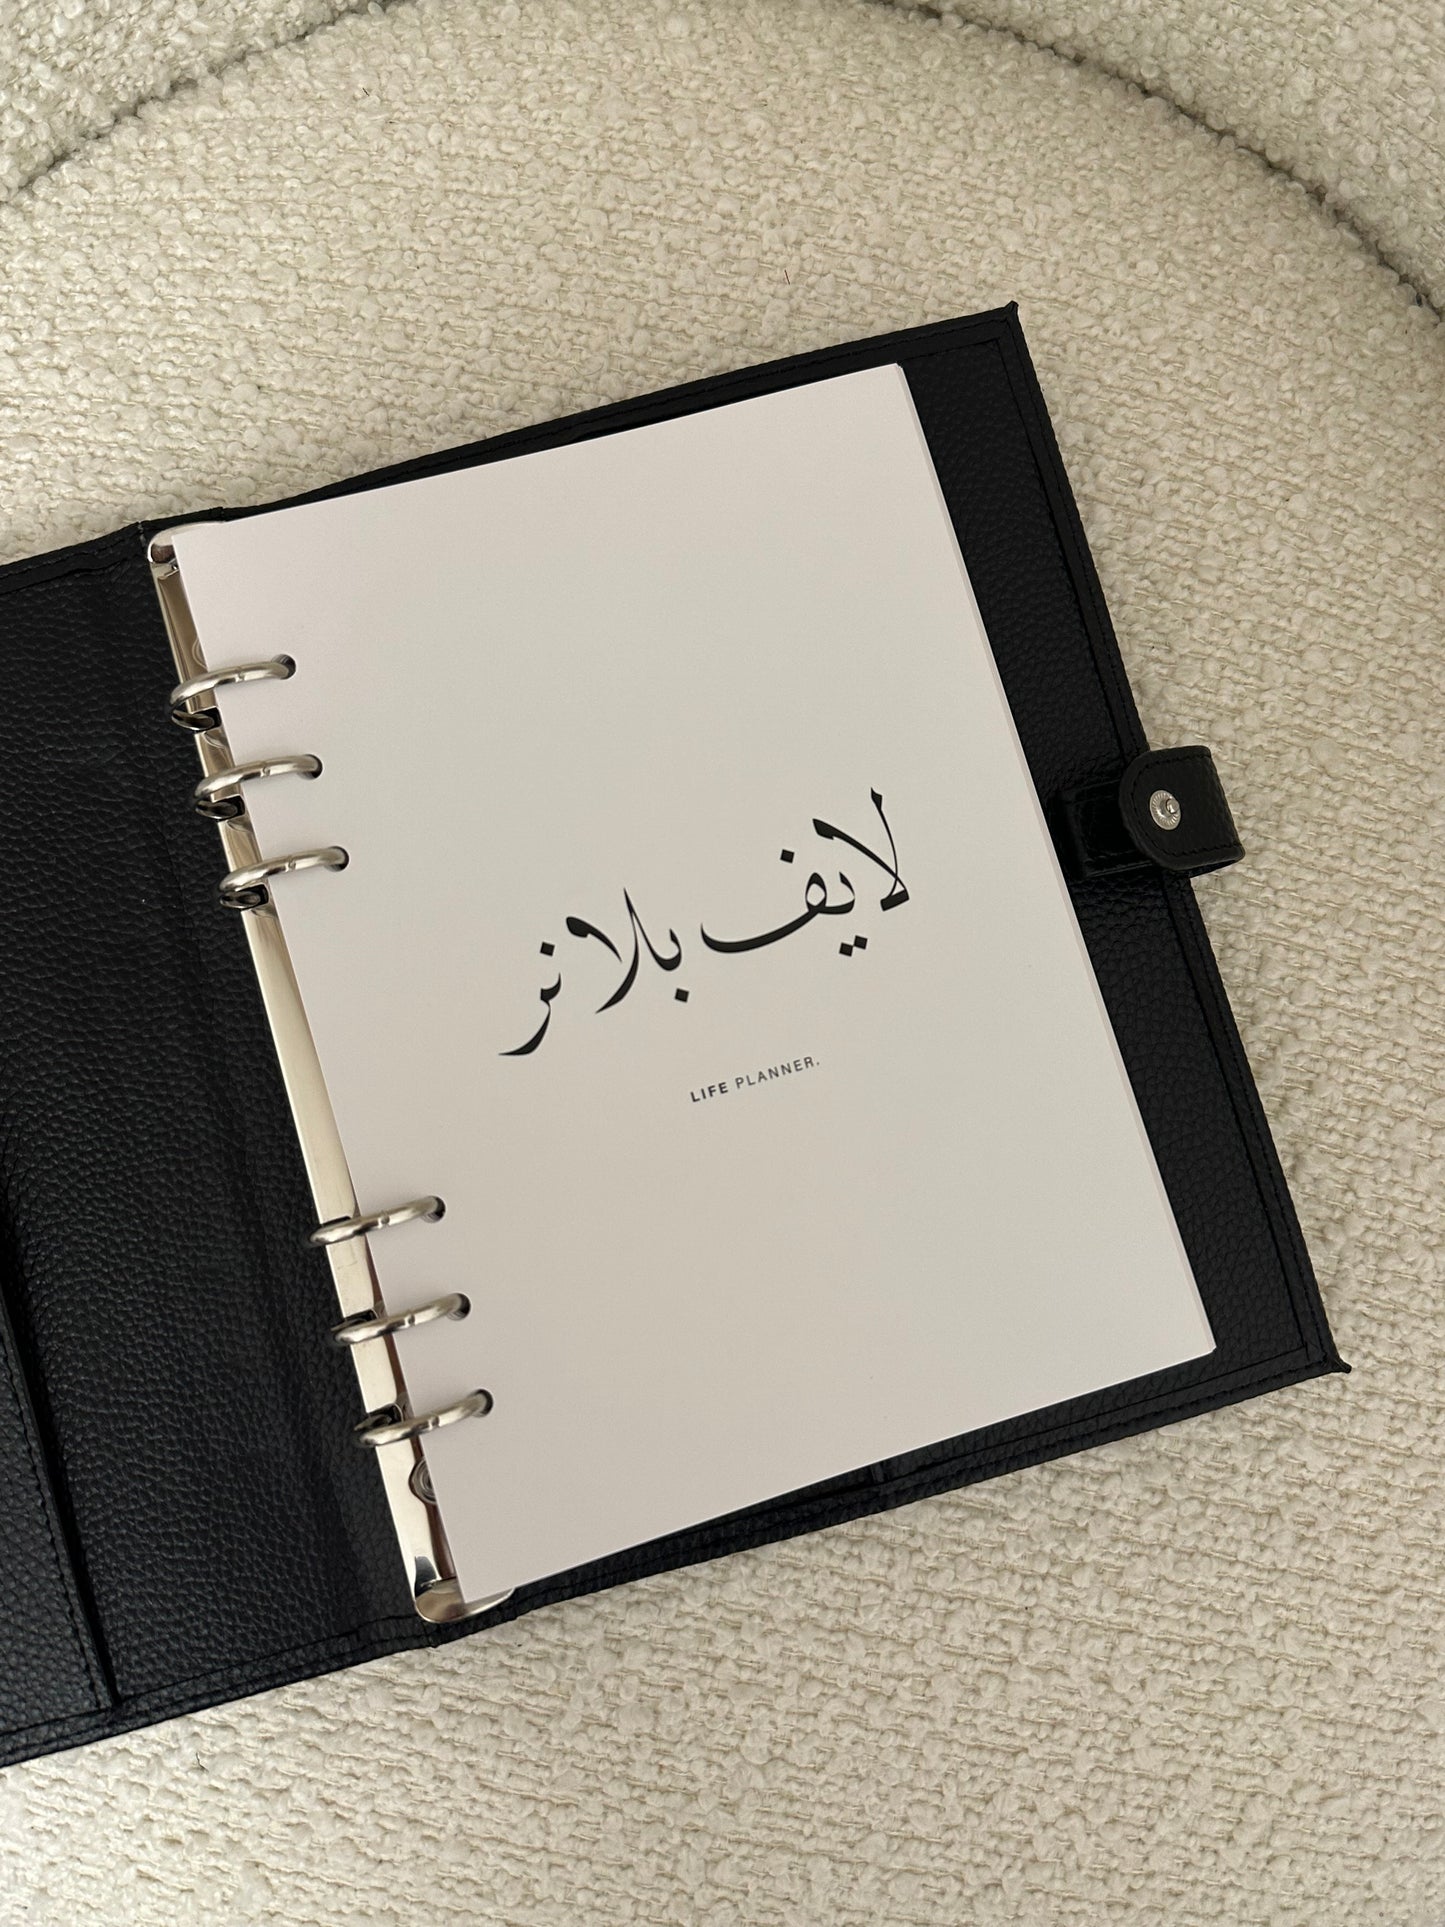 لايف بلانر
LIFE PLANNER.